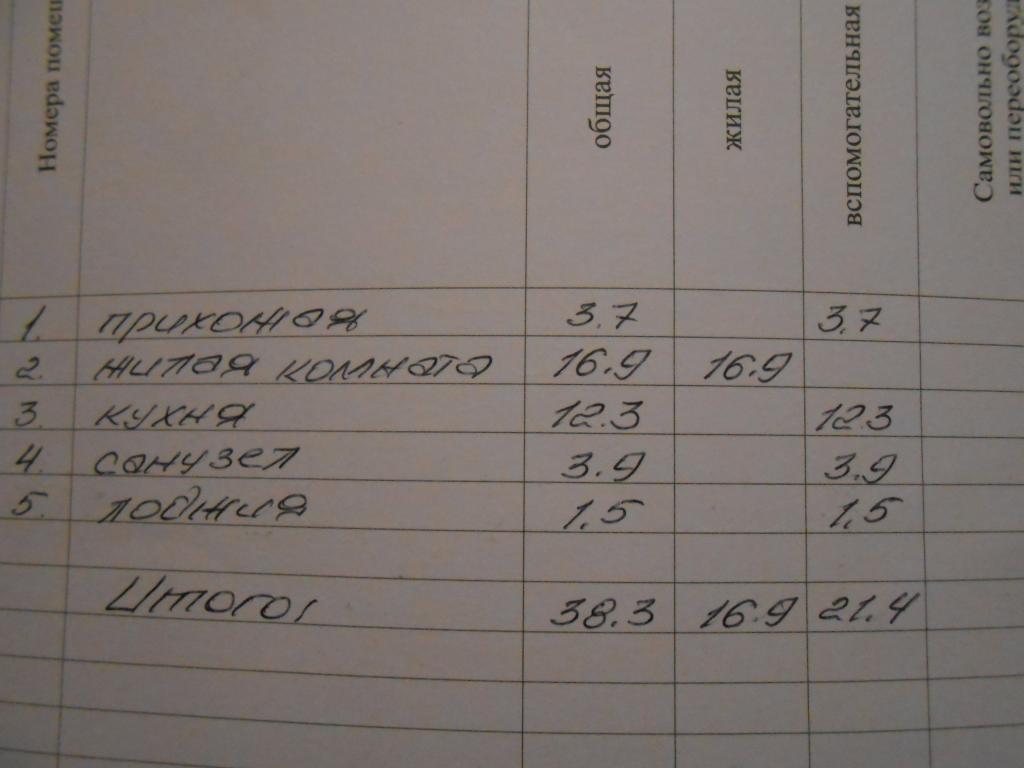 Номера
общая
жилая
вспомогательная
Самовольно
или
1. прихожая 3.7 3.7
2. жилая комната 16.9 16.9
3. кухня 12.3 12.3
4. санузел 3.9 3.9
5. лоджия 1.5 1.5
Итого: 38.3 16.9 21.4